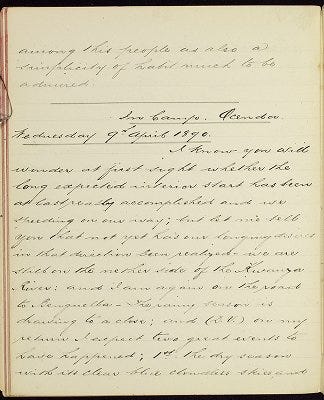 among this people as also a
simplicity of habit much to be
admired.
In Camp.
Wednesday 9th April 1890.
I know you will
wonder at first sight whether the
long expected interior start has been
at last really accomplished and we
speeding on our way; but let me tell
you that not yet has our longing desires
in that direction been realized - we are
still on the nether side of the Kwanza
River: and I am again on the road
to Benguella - The rainy season is
drawing to a close; and (D.V.) on my
return I expect two great events to
have happened; 1st the dry season
with its clear blue cloudless skies and